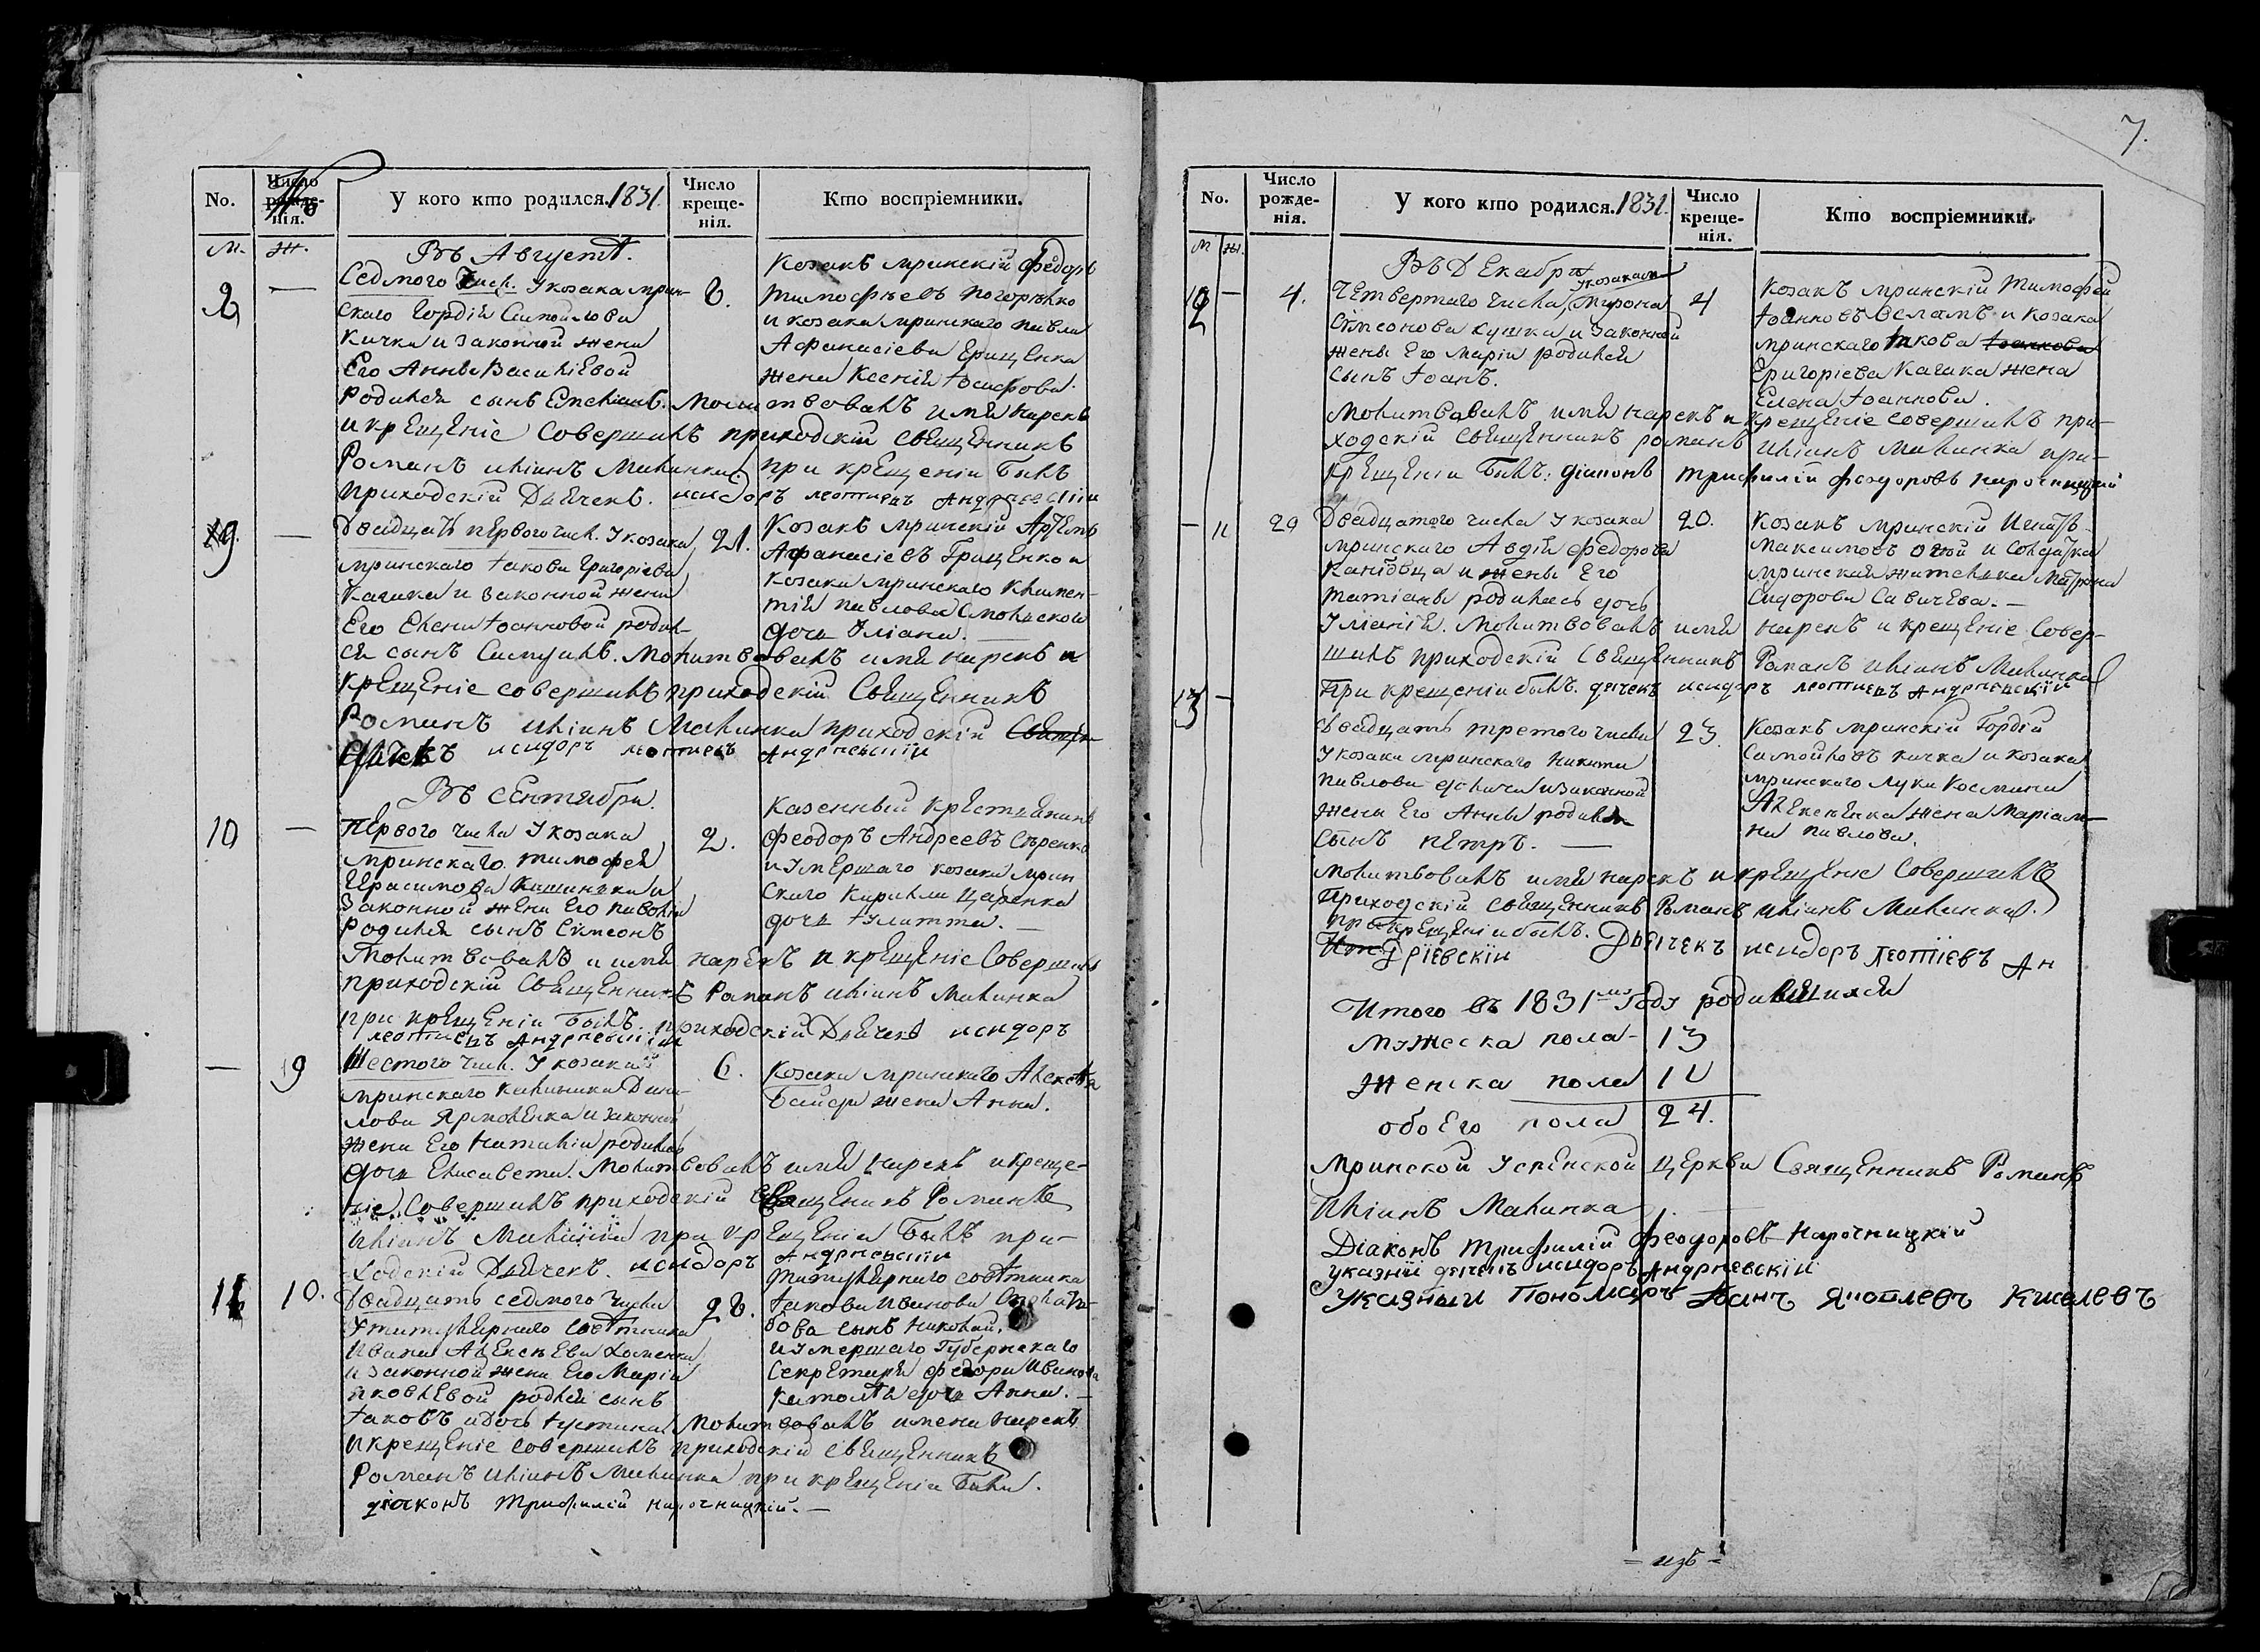 No.
Число рожде-нія.
У кого кто родился. 1831.
Число креще-нія.
Кто воспріемники.
м. ж.
Въ Августѣ.
8 —
Седмого числ. У козака мрин-
скаго Гордѣя Самойлова
Кички и законной жены
Его Анны Василіевой
8.
Козакъ мринскій Федоръ
Тимофѣевъ Погорѣлко
и козака мринскаго Павла
Афанасіева Грищенка
жена Ксенія Іосифова.
Родился сынъ Емеліанъ. Молитвовалъ имя нарекъ
и крещеніе совершилъ приходскій священникъ
Романъ Иліинъ Малинка при крещеніи былъ
приходскій Дьячекъ. исидоръ леотиевъ Андрпевскіи
9. —
двадцать первого числ. У козака
мринскаго Іакова Григоріева
Качика и законной жены
Его Елены Іоанновой родил-
21.
Козакъ мринскій Артемъ
Афанасіевъ Грищенко и
козака мринскаго Климен-
тія Павлова Смольской
дочь Уліана. —
ся сынъ Самуилъ. Молитвовалъ имя нарекъ и
крещеніе совершилъ приходскій Священникъ
Романъ Иліинъ Малинка приходскій
Дьячекъ исидоръ леотиевъ Андрпевскіи
Въ Сентябрѣ.
10 —
Первого числа У козака
мринскаго Тимофея
Герасимова Кишинка и
законной жены Его Павлы
родился сынъ Симеонъ
2.
Казенный крестьянинъ
Феодоръ Андреевъ Сѣренко
и Умершаго козака мрин
скаго Кирилы Царенка
дочь Іулитта. —
Молитвовалъ и имя нарекъ и крещеніе совершилъ
приходскій Священникъ Романъ Иліинъ Малинка
при крещеніи былъ приходскій Дьячекъ исидоръ
леотиевъ Андрпевскіи
— 9
Шестого числ. У козака
мринскаго Калиника Дани-
лова Ярмоленка и законной
жены Его Наталіи родилась
6.
Козака мринскаго Алексѣя
жена Анна.
дочь Елисавета. Молитвовалъ имя нарекъ и креще-
ніе совершилъ приходскій Священикъ Романъ
Иліинъ Малинка при крещеніи былъ при-
ходскій Дьячекъ. исидоръ Андрпевскіи
11 10.
двадцать седмого числа
У титулярнаго совѣтника
Ивана Алексѣева Хоменка
и законной жены Его Маріи
Яковлевой родися сынъ
28.
Титулярнаго совѣтника
Іакова Иванова
сынъ Николай.
и Умершаго Губернскаго
Секретаря Федора Иванова
дочь Анна. —
Іаковъ и дочь Іустина Молитвовалъ имена нарекъ
и крещеніе совершилъ приходскій священникъ
Романъ Иліинъ Малинка при крещеніи были.
діаконъ Трифилій Нарочницкій. —
7.
No.
Число рожде-нія.
У кого кто родился. 1831.
Число креще-нія.
Кто воспріемники.
м ж.
Въ Декабрѣ
У козака м
12 — 4.
Четвертаго числа, Мирона
Симеонова Кушка и законной
жены Его Маріи родился
сынъ Іоанъ.
4
Козакъ мринскій Тимофей
Іоанновъ и козака
мринскаго Іакова Іоаннова
Григоріева Качика жена
Елена Іоаннова.
Молитвовалъ имя нарекъ и крещеніе совершилъ при-
ходскій священникъ романъ Иліинъ Малинка при-
крещеніи былъ: діаконъ трифилій феодоровъ нарочницкій
— 11 20
Двадцатого числа У козака
мринскаго Авдія Федорова
Канівца и жены Его
Татіаны родилась дочь
20.
Козакъ мринскій Игнатъ
Максимовъ и Солдатка
мринская жителька Матрона
Сидорова Савичева. —
Уліанія. Молитвовалъ имя нарекъ и крещеніе совер-
шилъ приходскій Священникъ Романъ Иліинъ Малинка
При крещеніи былъ. дячекъ исидоръ леотиевъ Андрпевскіи
13 —
двадцать третого числа
У козака мринскаго Никиты
Павлова и законной
жены Его Анны родился
сынъ Петръ. —
23.
Козакъ мринскій Гордій
Самойловъ кичка и козака
мринскаго Луки Космина
Алексѣенка жена Маріам-
на Павлова.
Молитвовалъ имя нарекъ и крещеніе совершилъ
Приходскій священникъ Романъ Иліинъ Малинка.
при крещеніи былъ. Дьячекъ исидоръ леотіевъ Ан
дріевскіи
Итого въ 1831мъ году родившихся
мужеска пола - 13
женска пола 11
обоего пола 24.
Мринской Успенской церкви Священникъ Романъ
Иліинъ Малинка
Діаконъ Трифилій Феодоровъ Нарочницкій
указній дячекъ исидоръ Андрпевскіи
Указный Пономаръ Іоанъ Яковлевъ